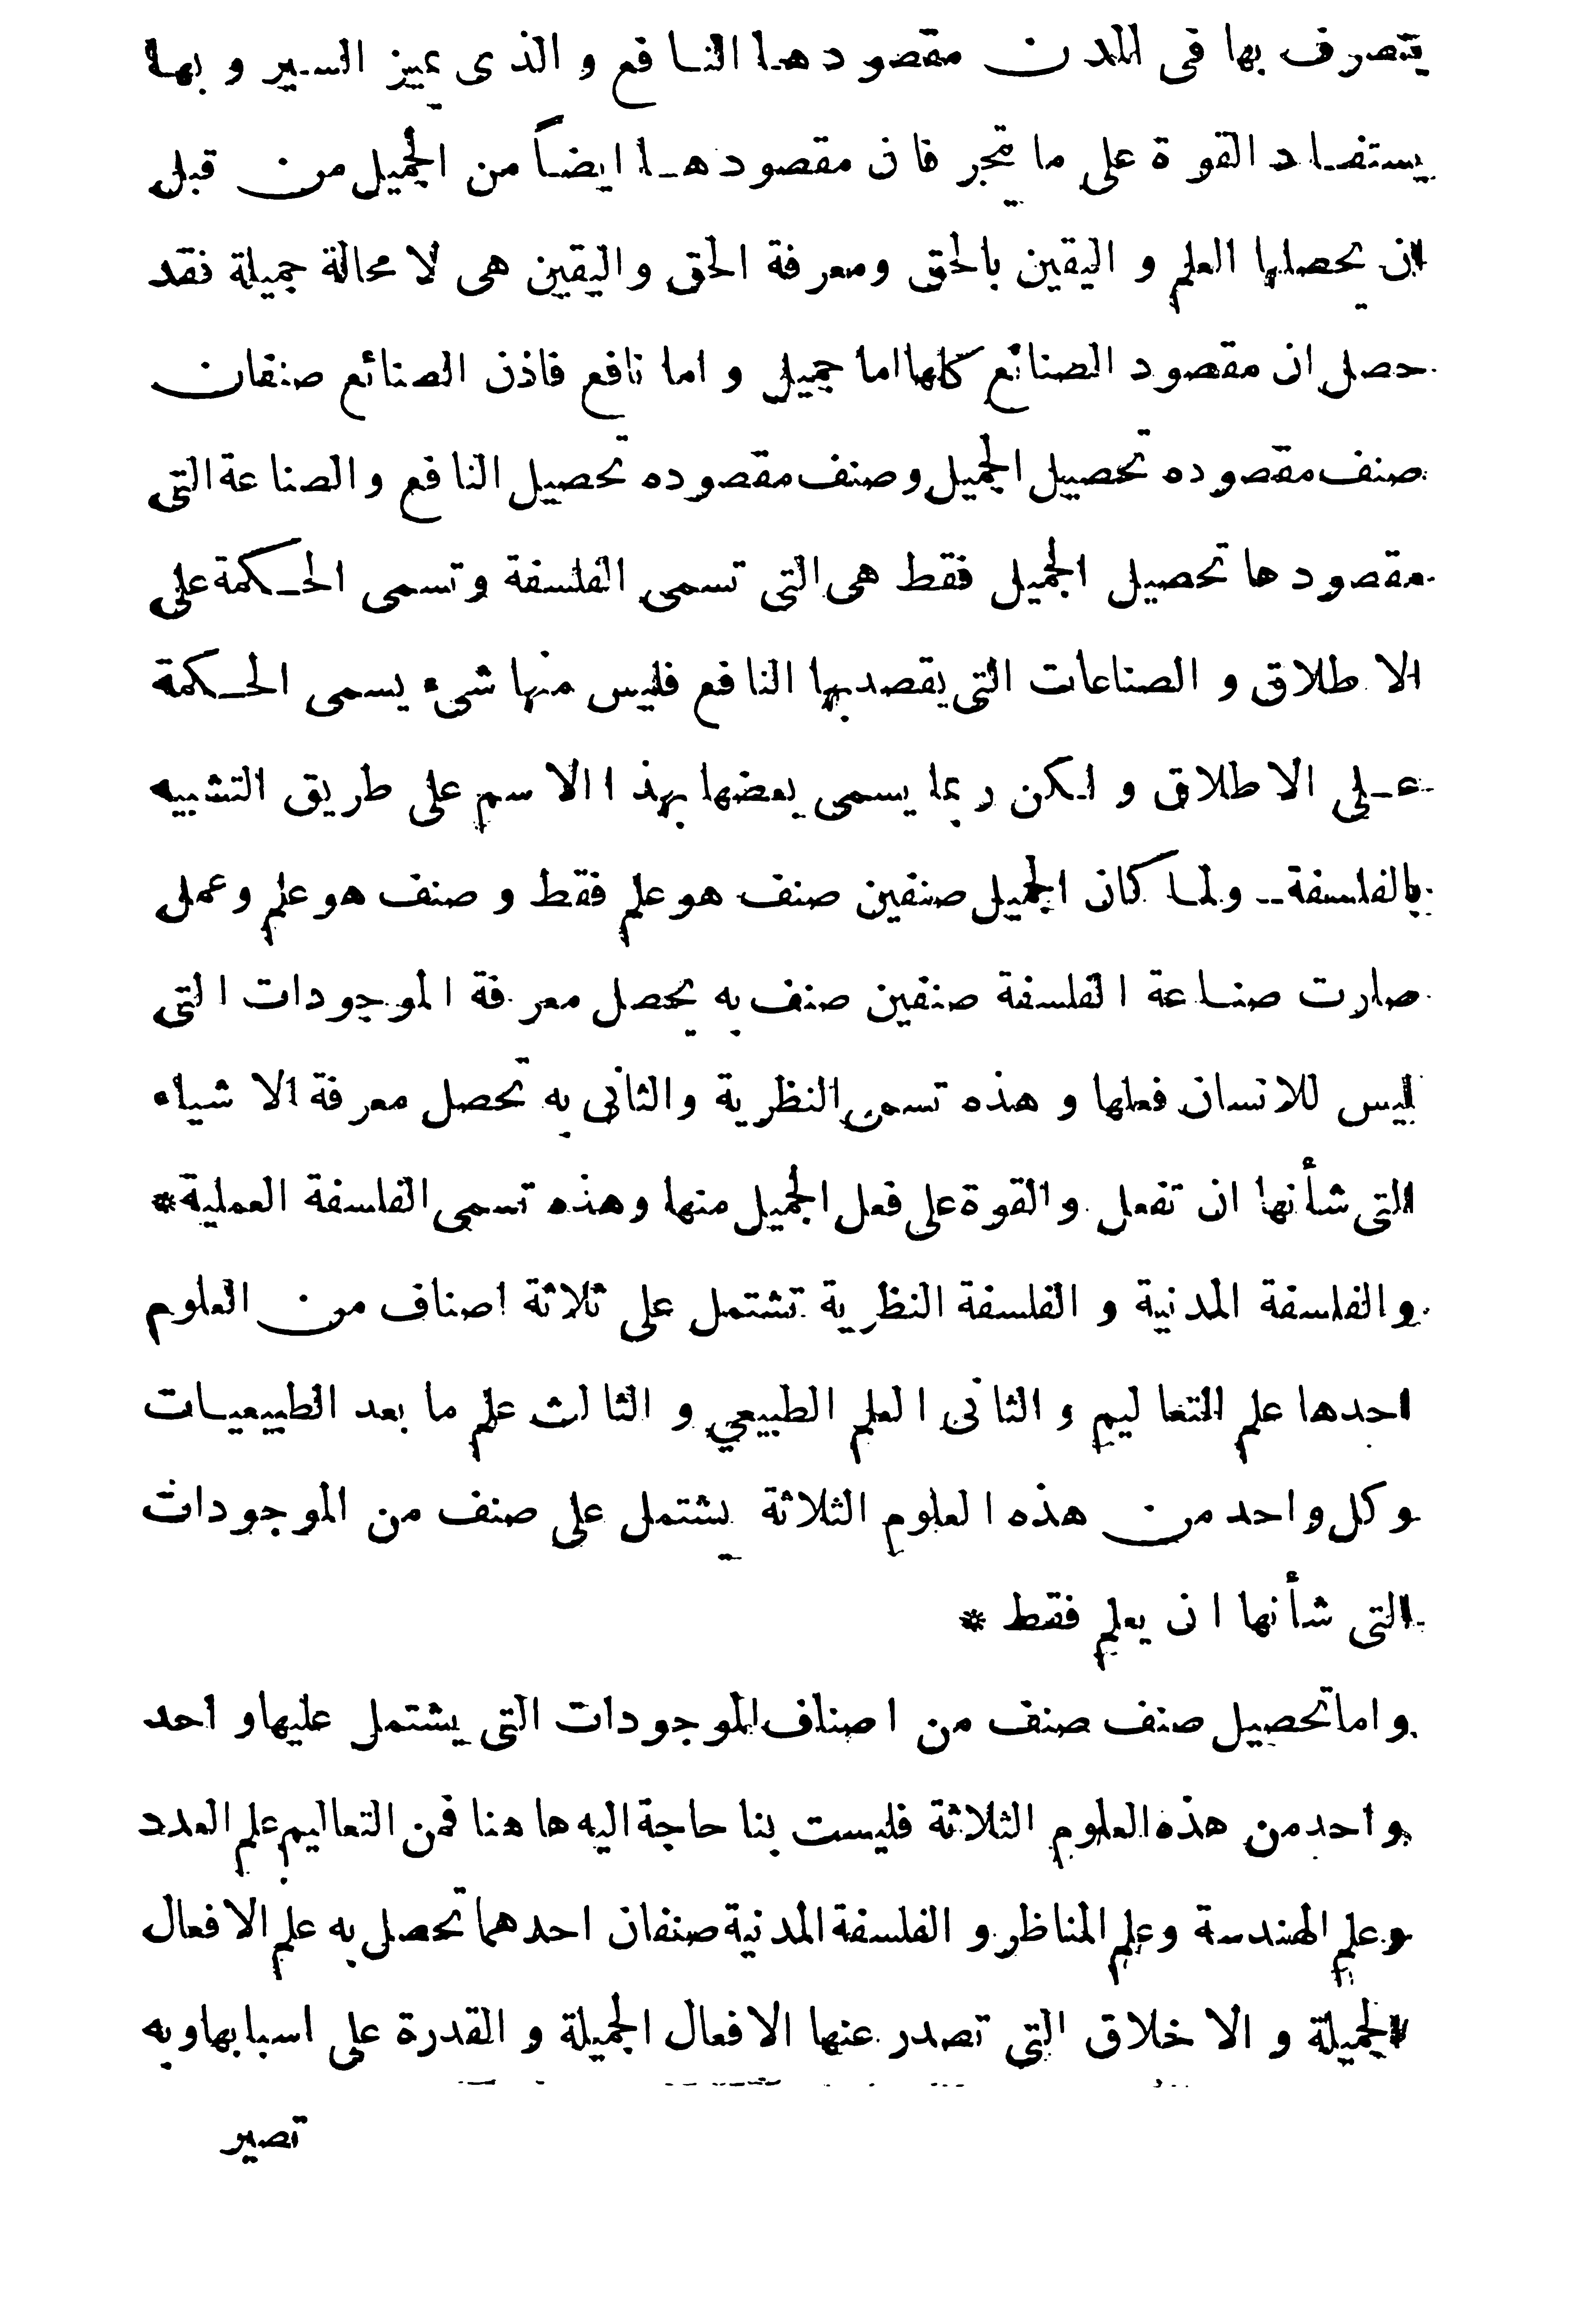 يتصرف بها فى المدن مقصودها النافع والذى يميز السير وبها
يستفاد القوة على ما يتجر فان مقصودها ايضاً من الجميل من قبل
ان يحصلها العلم واليقين بالحق ومعرفة الحق واليقين هى لا محالة جميلة نقد
حصل ان مقصود الصنائع كلها اما جميل واما نافع فاذن الصنائع صنفان
صنف مقصوده تحصيل الجميل وصنف مقصوده تحصيل النافع والصناعة التى
مقصودها تحصيل الجميل فقط هى التى تسمى الفلسفة وتسمى الحكمة على
الاطلاق والصناعات التى يقصد بها النافع فليس منها شىء يسمى الحكمة
على الاطلاق ولكن ربما يسمى بعضها بهذا الاسم على طريق التشبيه
بالفلسفة _ ولما كان الجميل صنفين صنف هو علم فقط وصنف هو علم وعمل
صارت صناعة الفلسفة صنفين صنف به يحصل معرفة الموجودات التى
ليس للانسان فعلها وهذه تسمى النظرية والثانى به تحصل معرفة الاشياء
التى شأنها ان تفعل والقوة على فعل الجميل منها وهذه تسمى الفلسفة العملية *
والفلسفة المدنية والفلسفة النظرية تشتمل على ثلاثة اصناف من العلوم
احدها علم التعاليم والثانى العلم الطبيعي والثالث علم ما بعد الطبيعيات
وكل واحد من هذه العلوم الثلاثة يشتمل على صنف من الموجودات
التى شأنها ان يعلم فقط *
واما تحصيل صنف صنف من اصناف الموجودات التى يشتمل عليها واحد
واحد من هذه العلوم الثلاثة فليست بنا حاجة اليه هاهنا فمن التعاليم علم العدد
وعلم الهندسة وعلم المناظر والفلسفة المدنية صنفان احدهما تحصل به علم الافعال
الجميلة والاخلاق التى تصدر عنها الافعال الجميلة والقدرة على اسبابها وبه
تصير